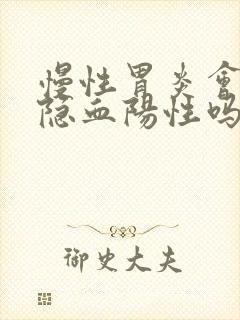 慢性胃炎會
隐血陽性吗
御史大夫